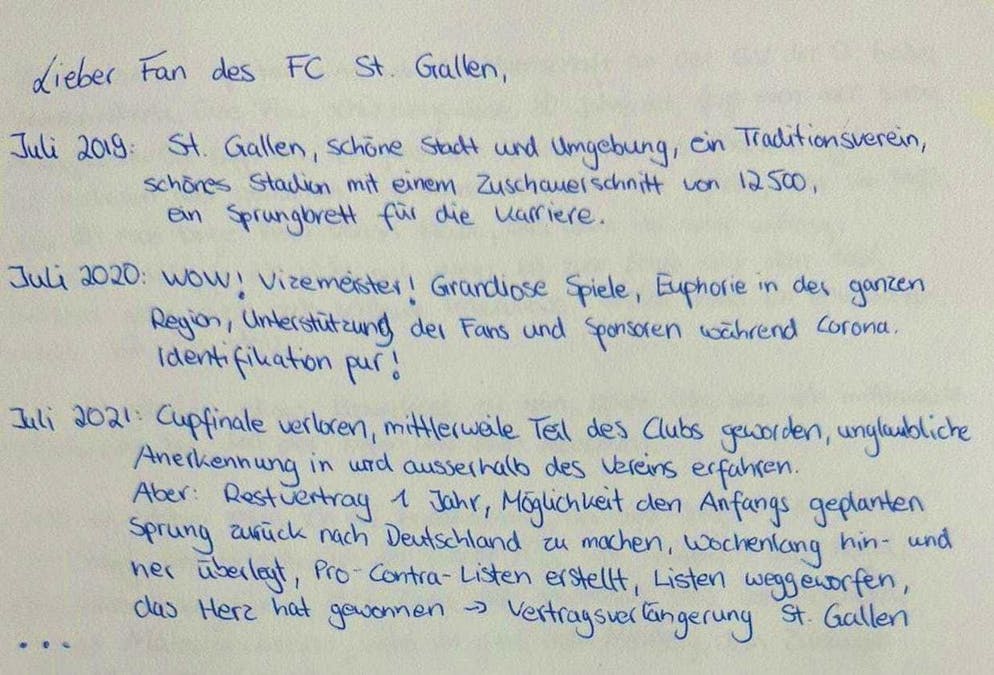 Lieber Fan des FC St. Gallen,
Juli 2019: St. Gallen, schöne Stadt und Umgebung, ein Traditionsverein,
schönes Stadion mit einem Zuschauerschnitt von 12500,
ein Sprungbrett für die Karriere.
Juli 2020: WOW! Vizemeister! Grandiose Spiele, Euphorie in der ganzen
Region, Unterstützung der Fans und Sponsoren während Corona.
Identifikation pur!
Juli 2021: Cupfinale verloren, mittlerweile Teil des Clubs geworden, unglaubliche
Anerkennung in und ausserhalb des Vereins erfahren.
Aber: Restvertrag 1 Jahr, Möglichkeit den Anfangs geplanten
Sprung zurück nach Deutschland zu machen, wochenlang hin- und
her überlegt, Pro-Contra-Listen erstellt, Listen weggeworfen,
das Herz hat gewonnen → Vertragsverlängerung St. Gallen
...